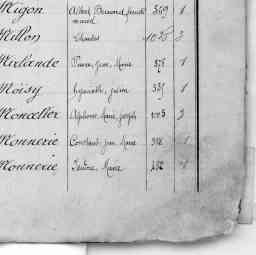 Migon Albert Bernard 369 1
Millon Charles 1028 3
Mirlande Pierre, Jean, Marie 378 1
Moisy hyacinthe, julien 335 1
Moncellier Alphonse Marie joseph 1
Monnerie Constant Jean Marie 1
Monnerie Marie 252 1